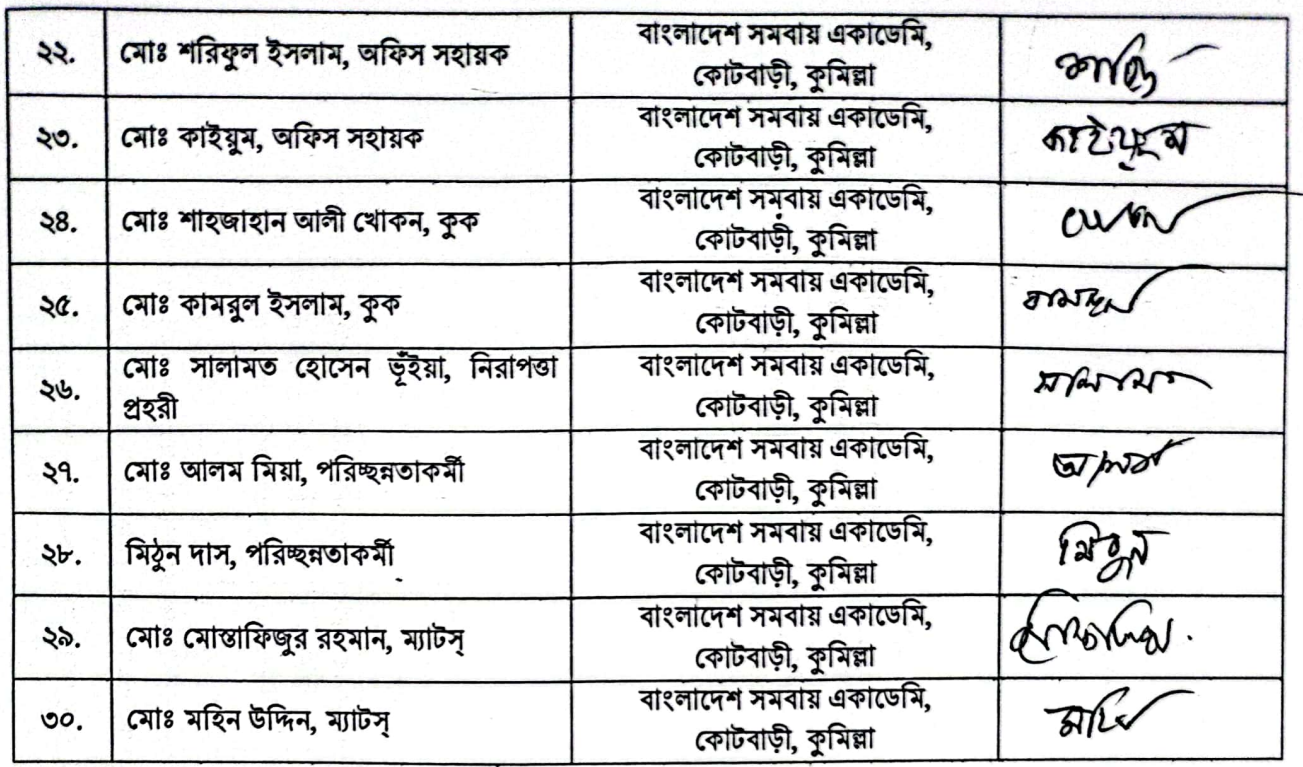 ২২. মোঃ শরিফুল ইসলাম, অফিস সহায়ক বাংলাদেশ সমবায় একাডেমি,
কোটবাড়ী, কুমিল্লা
২৩. মোঃ কাইয়ুম, অফিস সহায়ক বাংলাদেশ সমবায় একাডেমি,
কোটবাড়ী, কুমিল্লা কাইয়ুম
২৪. মোঃ শাহজাহান আলী খোকন, কুক বাংলাদেশ সমবায় একাডেমি,
কোটবাড়ী, কুমিল্লা
২৫. মোঃ কামরুল ইসলাম, কুক বাংলাদেশ সমবায় একাডেমি,
কোটবাড়ী, কুমিল্লা
২৬. মোঃ সালামত হোসেন ভূঁইয়া, নিরাপত্তা
প্রহরী
বাংলাদেশ সমবায় একাডেমি,
কোটবাড়ী, কুমিল্লা সালামত
২৭. মোঃ আলম মিয়া, পরিচ্ছন্নতাকর্মী বাংলাদেশ সমবায় একাডেমি,
কোটবাড়ী, কুমিল্লা আলম
২৮. মিঠুন দাস, পরিচ্ছন্নতাকর্মী বাংলাদেশ সমবায় একাডেমি,
কোটবাড়ী, কুমিল্লা মিঠুন
২৯. মোঃ মোস্তাফিজুর রহমান, ম্যাটস্ বাংলাদেশ সমবায় একাডেমি,
কোটবাড়ী, কুমিল্লা
৩০. মোঃ মহিন উদ্দিন, ম্যাটস্ বাংলাদেশ সমবায় একাডেমি,
কোটবাড়ী, কুমিল্লা